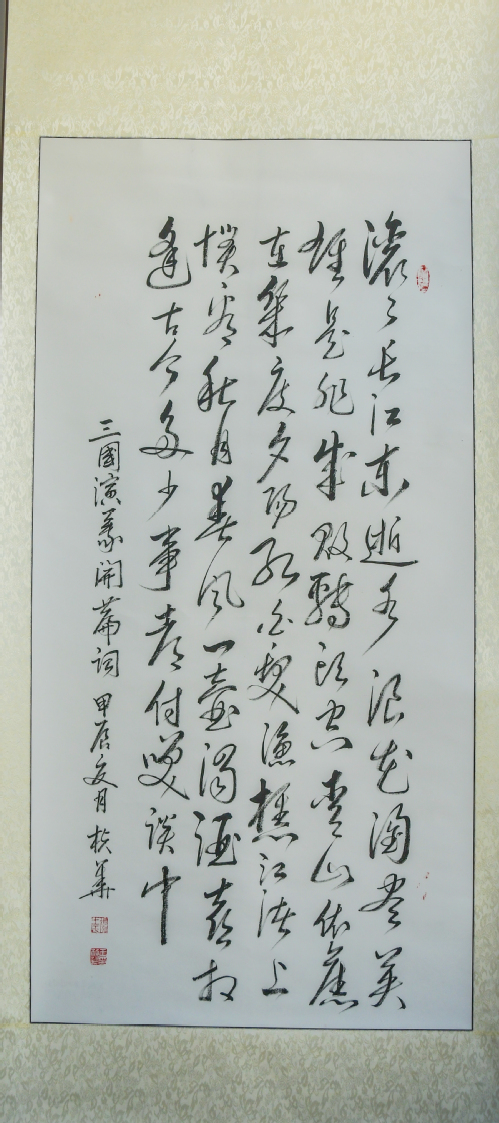 滚々长江东逝水浪花淘尽英
雄是非成败轉头空青山依舊
在幾度夕阳红白髮渔樵江渚上
惯看秋月春风一壶濁酒喜相
逢古今多少事都付笑谈中
三國演義開篇词 甲辰夏月 華